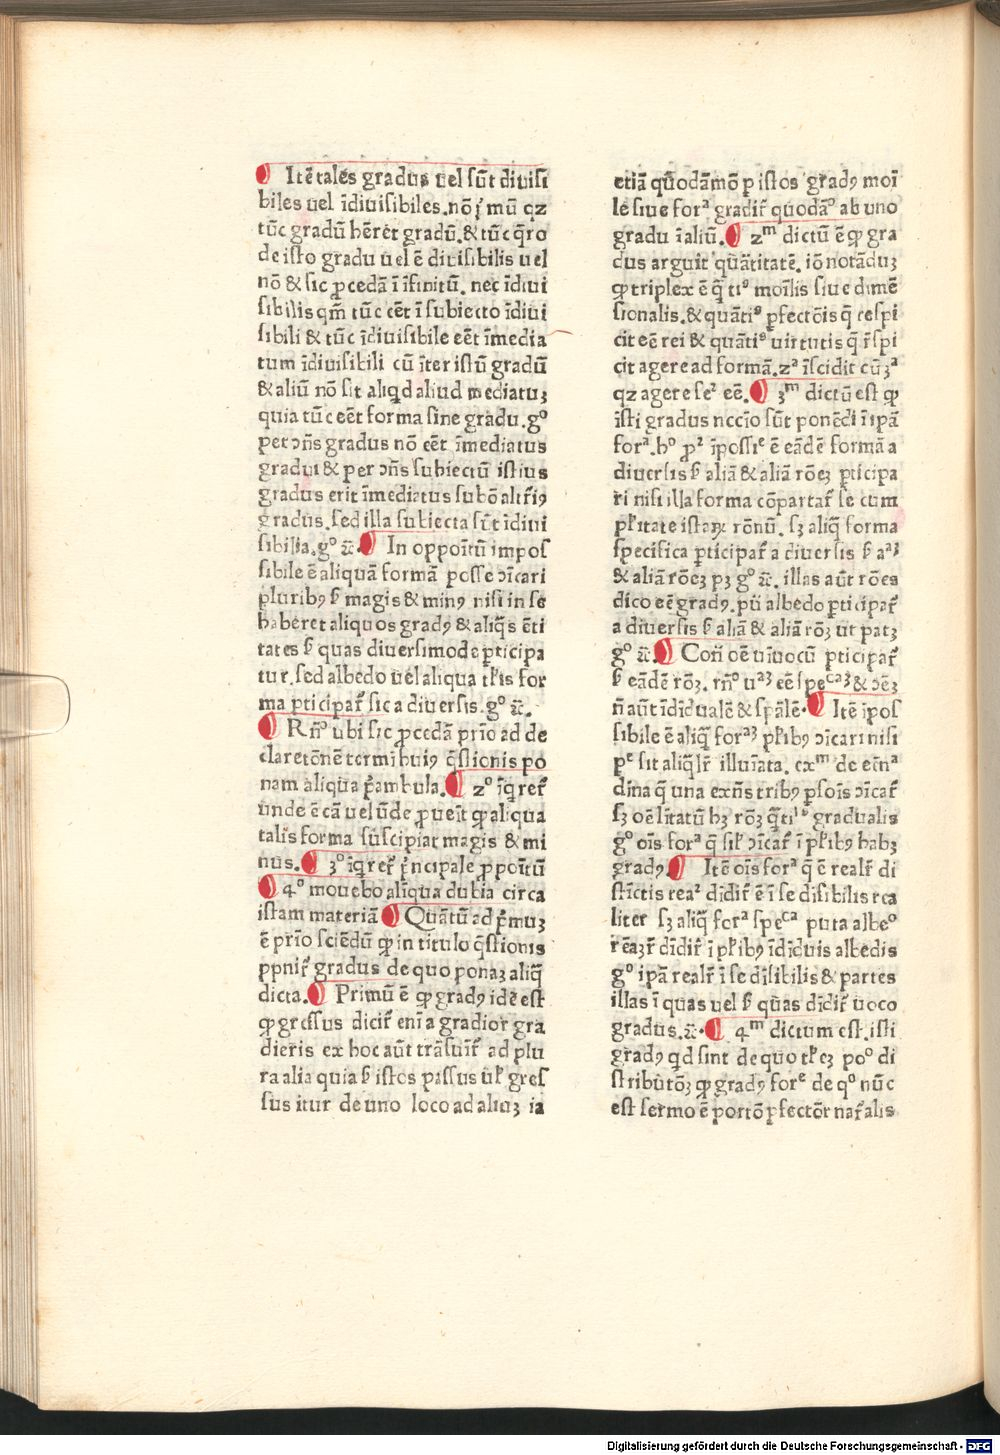 Itē tales gradus uel sūt diuisi
biles uel īdiuisibiles. nō j̄ mū qz
tūc gradū hēret gradū. & tūc q̄ro
de isto gradu uel ē diuisibilis uel
nō & sic ꝓcedā ī īfinitū. nec īdiui
sibilis qm̄ tūc cēt ī subiecto īdiui
sibili & tūc īdiuisibile eēt īmedia
tum īdiuisibili cū īter istū gradū
& aliū nō sit aliqd aliud mediatuꝫ
quia tūc eēt forma sine gradu. gº
per ↄn̄s gradus nō eēt īmediatus
gradui & per ↄn̄s subiectū istius
gradus erit īmediatus subō alt̄iꝰ
gradus. sed illa subiecta sūt īdiui
sibilia. gº ⁊c̄. In oppoītū impos
sibile ē aliquā formā posse ↄīcari
pluribꝰ ẜ magis & minꝰ nisi in se
haberet aliquos gradꝰ & aliq̄s ēti
tates ẜ quas diuersimode ꝑticipa
tur. sed albedo uel aliqua tl̄is for
ma ꝑticipat̄ sic a diuersis. gº ⁊c̄.
Rn̄º ubi sic ꝓcedā prīo ad de
claretōnē termī huiꝰ q̄stionis po
nam aliqua p̄ambula. 2º īqret̄
unde ē cā uel ūde ꝓueīt ꝙ aliqua
talis forma suscipiat magis & mi
nus. 3º īqret̄ p̄ncipale ꝓpoītū
4º mouebo aliqua dubia circa
istam materiā Quātū ad p̄muꝫ
ē prīo sciēdū ꝙ in titulo q̄stionis
ppnit̄ gradus de quo ponaꝫ aliq̄
dicta. Primū ē ꝙ gradꝰ idē est
ꝙ gressus dicit̄ enī a gradior gra
dieris ex hoc aūt trāsuīt̄ ad plu
ra alia quia ẜ istos passus ul̄ gres
sus itur de uno loco ad aliuꝫ ia
etiā quodāmō ꝑ istos gradꝰ moī
le siue forᵃ gradit̄ quodāº ab uno
gradu ī aliū. 2ᵐ dictū ē ꝙ gra
dus arguit quātitatē. iō notāduꝫ
ꝙ triplex ē q̄ tiº moīlis siue dimē
sionalis. & quātiº ꝑfectōis q̄ respi
cit eē rei & quātiº uirtutis q̄ r̄spi
cit agere ad formā. 2ᵃ īscidit cū 3ᵃ
qz agere seʳ eē. 3ᵐ dictū est ꝙ
isti gradus nccīo sūt ponēdi ī ipā
forᵃ. hº ꝓʳ īpossiᵉ ē eādē formā a
diuersis ẜ aliā & aliā rōeꝫ ꝑticipa
ri nisi illa forma cōpartat̄ se cum
pl̄itate istaꝝ rōnū. sꝫ aliq̄ forma
specifica ꝑticipat̄ a diuersis ẜ aᵃꝫ
& aliā rōeꝫ pꝫ gº ⁊c̄. illas aūt rōes
dico eē gradꝰ. pū albedo ꝑticipat̄
a diuersis ẜ aliā & aliā rōꝫ ut patꝫ
gº ⁊c̄. Con̄ oē uīuocū ꝑticipat̄
ẜ eādē rōꝫ. rn̄º uᵃꝫ eē speᶜᵃꝫ & ↄēꝫ
n̄ aūt īdīdualē & spālē. Itē īpos
sibile ē aliq̄ forᵃꝫ pl̄ibꝰ ↄīcari nisi
pᵉ sit aliql̄r illuīata. exᵐ de ecīᵃ
dīna q̄ una exn̄s tribꝰ ꝑsoīs ↄīcat̄
sꝫ oē līitatū hꝫ rōꝫ q̄tiⁱˢ gradualis
gº oīs forᵃ q̄ sil̄ ↄīcat̄ ī pl̄ibꝰ habꝫ
gradꝰ. Itē oīs forᵃ q̄ ē realr̄ di
stīctis reaʳ dīdit̄ ē ī se diſibilis rea
liter sꝫ aliq̄ forᵃ speᶜᵃ puta albeº
rēaꝫr̄ dīdit̄ ī pl̄ibꝰ īdīduis albedīs
gº ipā realr̄ ī se dīsibilis & partes
illas ī quas uel ẜ quas dīdit̄ uoco
gradus. ⁊c̄. 4ᵐ dictum est. isti
gradꝰ qd sint de quo tl̄eꝫ poº di
stributōꝫ ꝙ gradꝰ forᵉ de qº nūc
est sermo ē portō ꝑfectōr nat̄alis
Digitalisierung gefördert durch die Deutsche Forschungsgemeinschaft - DFG